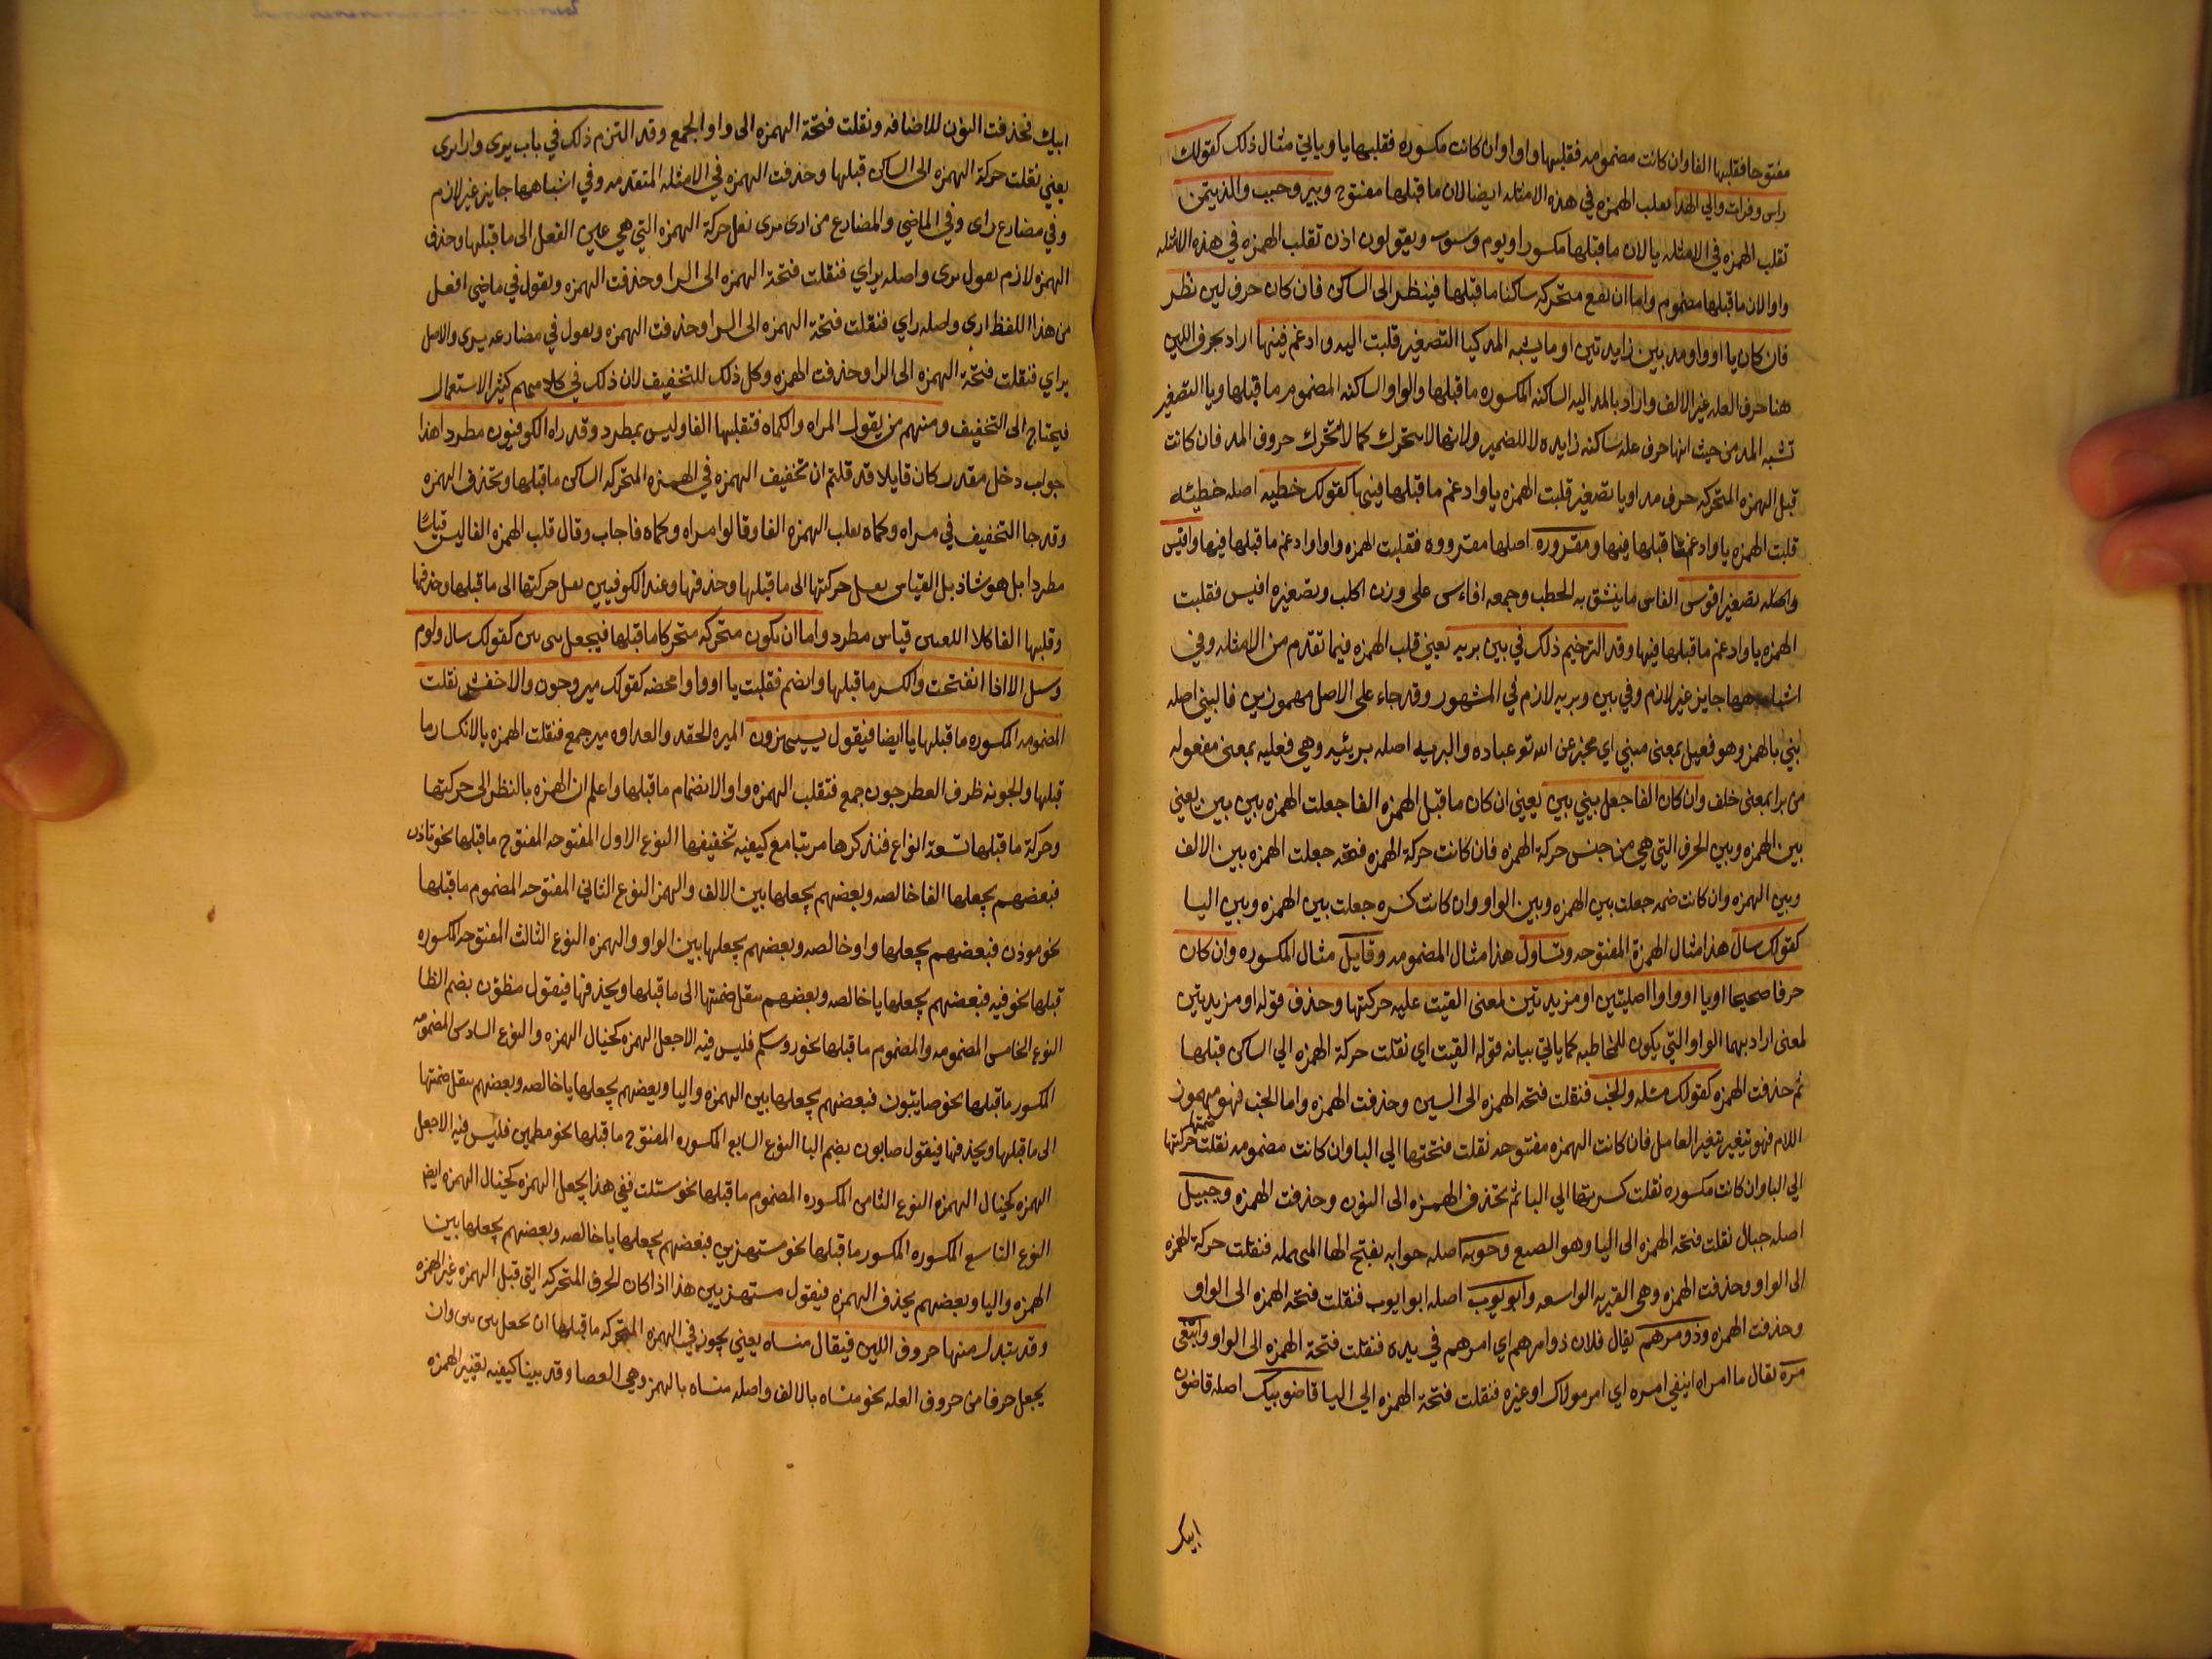 مفتوحا فقلبها الفا وان كانت مضمومه فقلبها واوا وان كانت مكسوره فقلبها يا وياتي مثال ذلك كقولك
راس وقرات والي الهدا تعلب الهمزه في هذه الامثله ايضا لان ما قبلها مفتوح وبير وجيت والذيتمن
تقلب الهمزه في الامثله يا لان ما قبلها مكسور او يوم وسوت ويقولون اذن تقلب الهمزه في هذه الامثله
واوا لان ما قبلها مضموم واما ان تقع متحركه ساكنا ما قبلها فينظر الى الساكن فان كان حرف لين نظر
فان كان يا او واو مدبين زايدتين او ما يشبه المد كيا التصغير قلبت اليه وادغم فيها اراد بحرف اللين
هنا حرف العله غير الالف واراد بالمد اليا الساكنه المكسوره ما قبلها والواو الساكنه المضموم ما قبلها ويا التصغير
تشبه المد من حيث انها حرف عله ساكنه زايده لا للضمير ولانها لا تتحرك كما لا تتحرك حروف المد فان كانت
قبل الهمزه المتحركه حرف مد او يا تصغير قلبت الهمزه يا وادغم ما قبلها فيها كقولك خطيه اصله خطيئه
قلبت الهمزه يا وادغم ما قبلها فيها ومقروره اصلها مقرووه فقلبت الهمزه واوا وادغم ما قبلها فيها وافيس
واصله تصغير افوس الفاس ما ينشق به الحطب وجمعه افاءس على وزن اكلب وتصغيره افيس فقلبت
الهمزه يا وادغم ما قبلها فيها وقد الترخيم ذلك في بين بريه يعني قلب الهمزه فيما تقدم من الامثله وفي
اشباهها جايز غير لازم وفي بين وبريه لازم في المشهور وقد جاء على الاصل مهموزين فالبني اصله
بني بالهمز وهو فعيل بمعنى مبني اي مخبر عن الله تو عباده والبريه اصله بريئيه وهي فعليه بمعنى مفعوله
من برا بمعنى خلف وان كان الفا جعل بيني بين يعني ان كان ما قبل الهمزه الفا جعلت الهمزه بين بين يعني
بين الهمزه وبين الحرف التي هي من جنس حركة الهمزه فان كانت حركة الهمزه فتحه جعلت الهمزه بين الالف
وبين الهمزه وان كانت ضمه جعلت بين الهمزه وبين الواو وان كانت كسره جعلت بين الهمزه وبين اليا
كقولك سال هذا مثال الهمزة المفتوحه وتساول هذا مثال المضمومه وقايل مثال المكسوره وان كان
حرفا صحيحا او يا او واوا اصليتين او مزيدتين لمعنى القيت عليه حركتها وحذف قوله او مزيدتين
لمعنى اراد بهما الواو التي يكون للمخاطبه كما ياتي بيانه قوله القيت اي نقلت حركة الهمزه الي الساكن قبلها
ثم حذفت الهمزه كقولك مثله والخب فنقلت فتحه الهمزه الى السين وحذفت الهمزه واما الخب فهو مهموز
اللام فهو تيغير بتغير العامل فان كانت الهمزه مفتوحه نقلت فتحتها الي البا وان كانت مضمومه نقلت حركتها ضمتها
الي البا وان كانت مكسوره نقلت كسرتها الي البا ثم تحذف الهمزه الى النون وحذفت الهمزه وجبيل
اصله جبال نقلت فتحه الهمزه الى اليا وهو الصبع وحوبه اصله حوابه بفتح الها المهمله فنقلت حركة الهمزه
الى الواو وحذفت الهمزه وهي القريه الواسعه وابويوب اصله ابوايوب فنقلت فتحه الهمزه الى الواو
وحذفت الهمزه وذومرهم يقال فلان ذوامرهم اي امرهم في يده فنقلت فتحة الهمزه الى الواو وابتغى
مره يقال ما امراه ابنغي امره اي امر مولاك او غيره فنقلت فتحة الهمزه الي اليا قاضو بيك اصله قاضون
ابيك
ابيك فحذفت النون للاضافه ونقلت فتحة الهمزه الى واو الجمع وقد التزم ذلك في باب يرى وارا يرى
يعني نقلت حركة الهمزه الى الساكن قبلها وحذفت الهمزه في الامثله المتقدمه وفي اشباهها جايز غير لازم
وفي مضارع راى وفي الماضي والمضارع من ارى يرى نقل حركة الهمزه التي هي عين الفعل الى ما قبلها وحذف
الهمزه لازم يقول يرى واصله يراي فنقلت فتحة الهمزه الى الرا وحذفت الهمزه ويقول في ماضي افعل
من هذا اللفظ ارى واصله راي فنقلت فتحة الهمزه الى الرا وحذفت الهمزه ويقول في مضارعه يري والاصل
يراي فنقلت فتحة الهمزه الى الرا وحذفت الهمزه وكل ذلك للتخفيف لان ذلك في كلامهم كثير الاستعمال
فيحتاج الى التخفيف ومنهم من يقول المراه والكماه فتقلبها الفا وليس بمطرد وقد راه الكوفيون مطردا هذا
جواب دخل مقدر كان قايلا قد قلتم ان تخفيف الهمزه في الهمزه المتحركه الساكن ما قبلها وتحذف الهمزه
وقد جا التخفيف في مراه وكماه بقلب الهمزه الفا وقالوا مراه وكماه فاجاب وقال قلب الهمزه الفا ليس قياسًا
مطردا بل هو شاذ بل القياس نقل حركتها الى ما قبلها وحذفها وعند الكوفيين نقل حركتها الى ما قبلها وحذفها
وقلبها الفا كلا اللغتين قياس مطرد واما ان تكون متحركه متحركا ما قبلها فيجعل بين بين كقولك سال ولوم
وسل الا اذا انفتحت وانكسر ما قبلها وانضم فقلبت يا او واوا محضه كقولك مير وجون والاخفش نقلت
المضمومه المكسوره ما قبلها يا ايضا فيقول يستهزون الميره الحقد والعداوه مير جمع فنقلت الهمزه يا لانكسار ما
قبلها والجونه ظرف العطر جون جمع فتقلب الهمزه واوا لانضمام ما قبلها واعلم ان الهمزه بالنظر الى حركتها
وحركة ما قبلها تسعة انواع فنذكرها مرتبا مع كيفيه تخفيفها النوع الاول المفتوحه المفتوح ما قبلها نحو تاذن
فبعضهم يجعلها الفا خالصه وبعضهم يجعلها بين الالف والهمز النوع الثاني المفتوحه المضموم ما قبلها
نحو موذن فبعضهم يجعلها واوا خالصه وبعضهم يجعلها بين الواو والهمزه النوع الثالث المفتوحه المكسوره
قبلها نحو فيه فبعضهم يجعلها يا خالصه وبعضهم ينقل ضمتها الى ما قبلها ويحذفها فيقول مظلون بضم الظا
النوع الخامس المضمومه والمضموم ما قبلها نحو روسكم فليس فيه الاجعل الهمزه كخيال الهمزه والنوع السادس المضمومه
المكسور ما قبلها نحو صايتبون فبعضهم يجعلها بين الهمزه واليا وبعضهم يجعلها يا خالصه وبعضهم ينقل ضمتها
الى ما قبلها ويحذفها فيقول صابون بضم البا النوع السابع المكسوره المفتوح ما قبلها نحو مطمين فليس فيه الاجعل
الهمزه كخيال الهمزه النوع الثامن المكسوره المضموم ما قبلها نحو ستلت ففي هذا يجعل الهمزه كخيال الهمزه ايض
النوع التاسع المكسوره المكسور ما قبلها نحو مستهزين فبعضهم يجعلها يا خالصه وبعضهم يجعلها بين
الهمزه واليا وبعضهم يحذف الهمزه فيقول مستهزيين هذا اذا كان الحرف المتحركه التي قبل الهمزه غير الهمزه
وقد يتبدل منها حروف اللين فيقال منساه يعني يجوز في الهمزه المتحركه ما قبلها ان تجعل بين بين وان
يجعل حرفا من حروف العله نحو منساه بالالف واصله منساه بالهمز وهي العصا وقد بينا كيفيه تغيير الهمزه